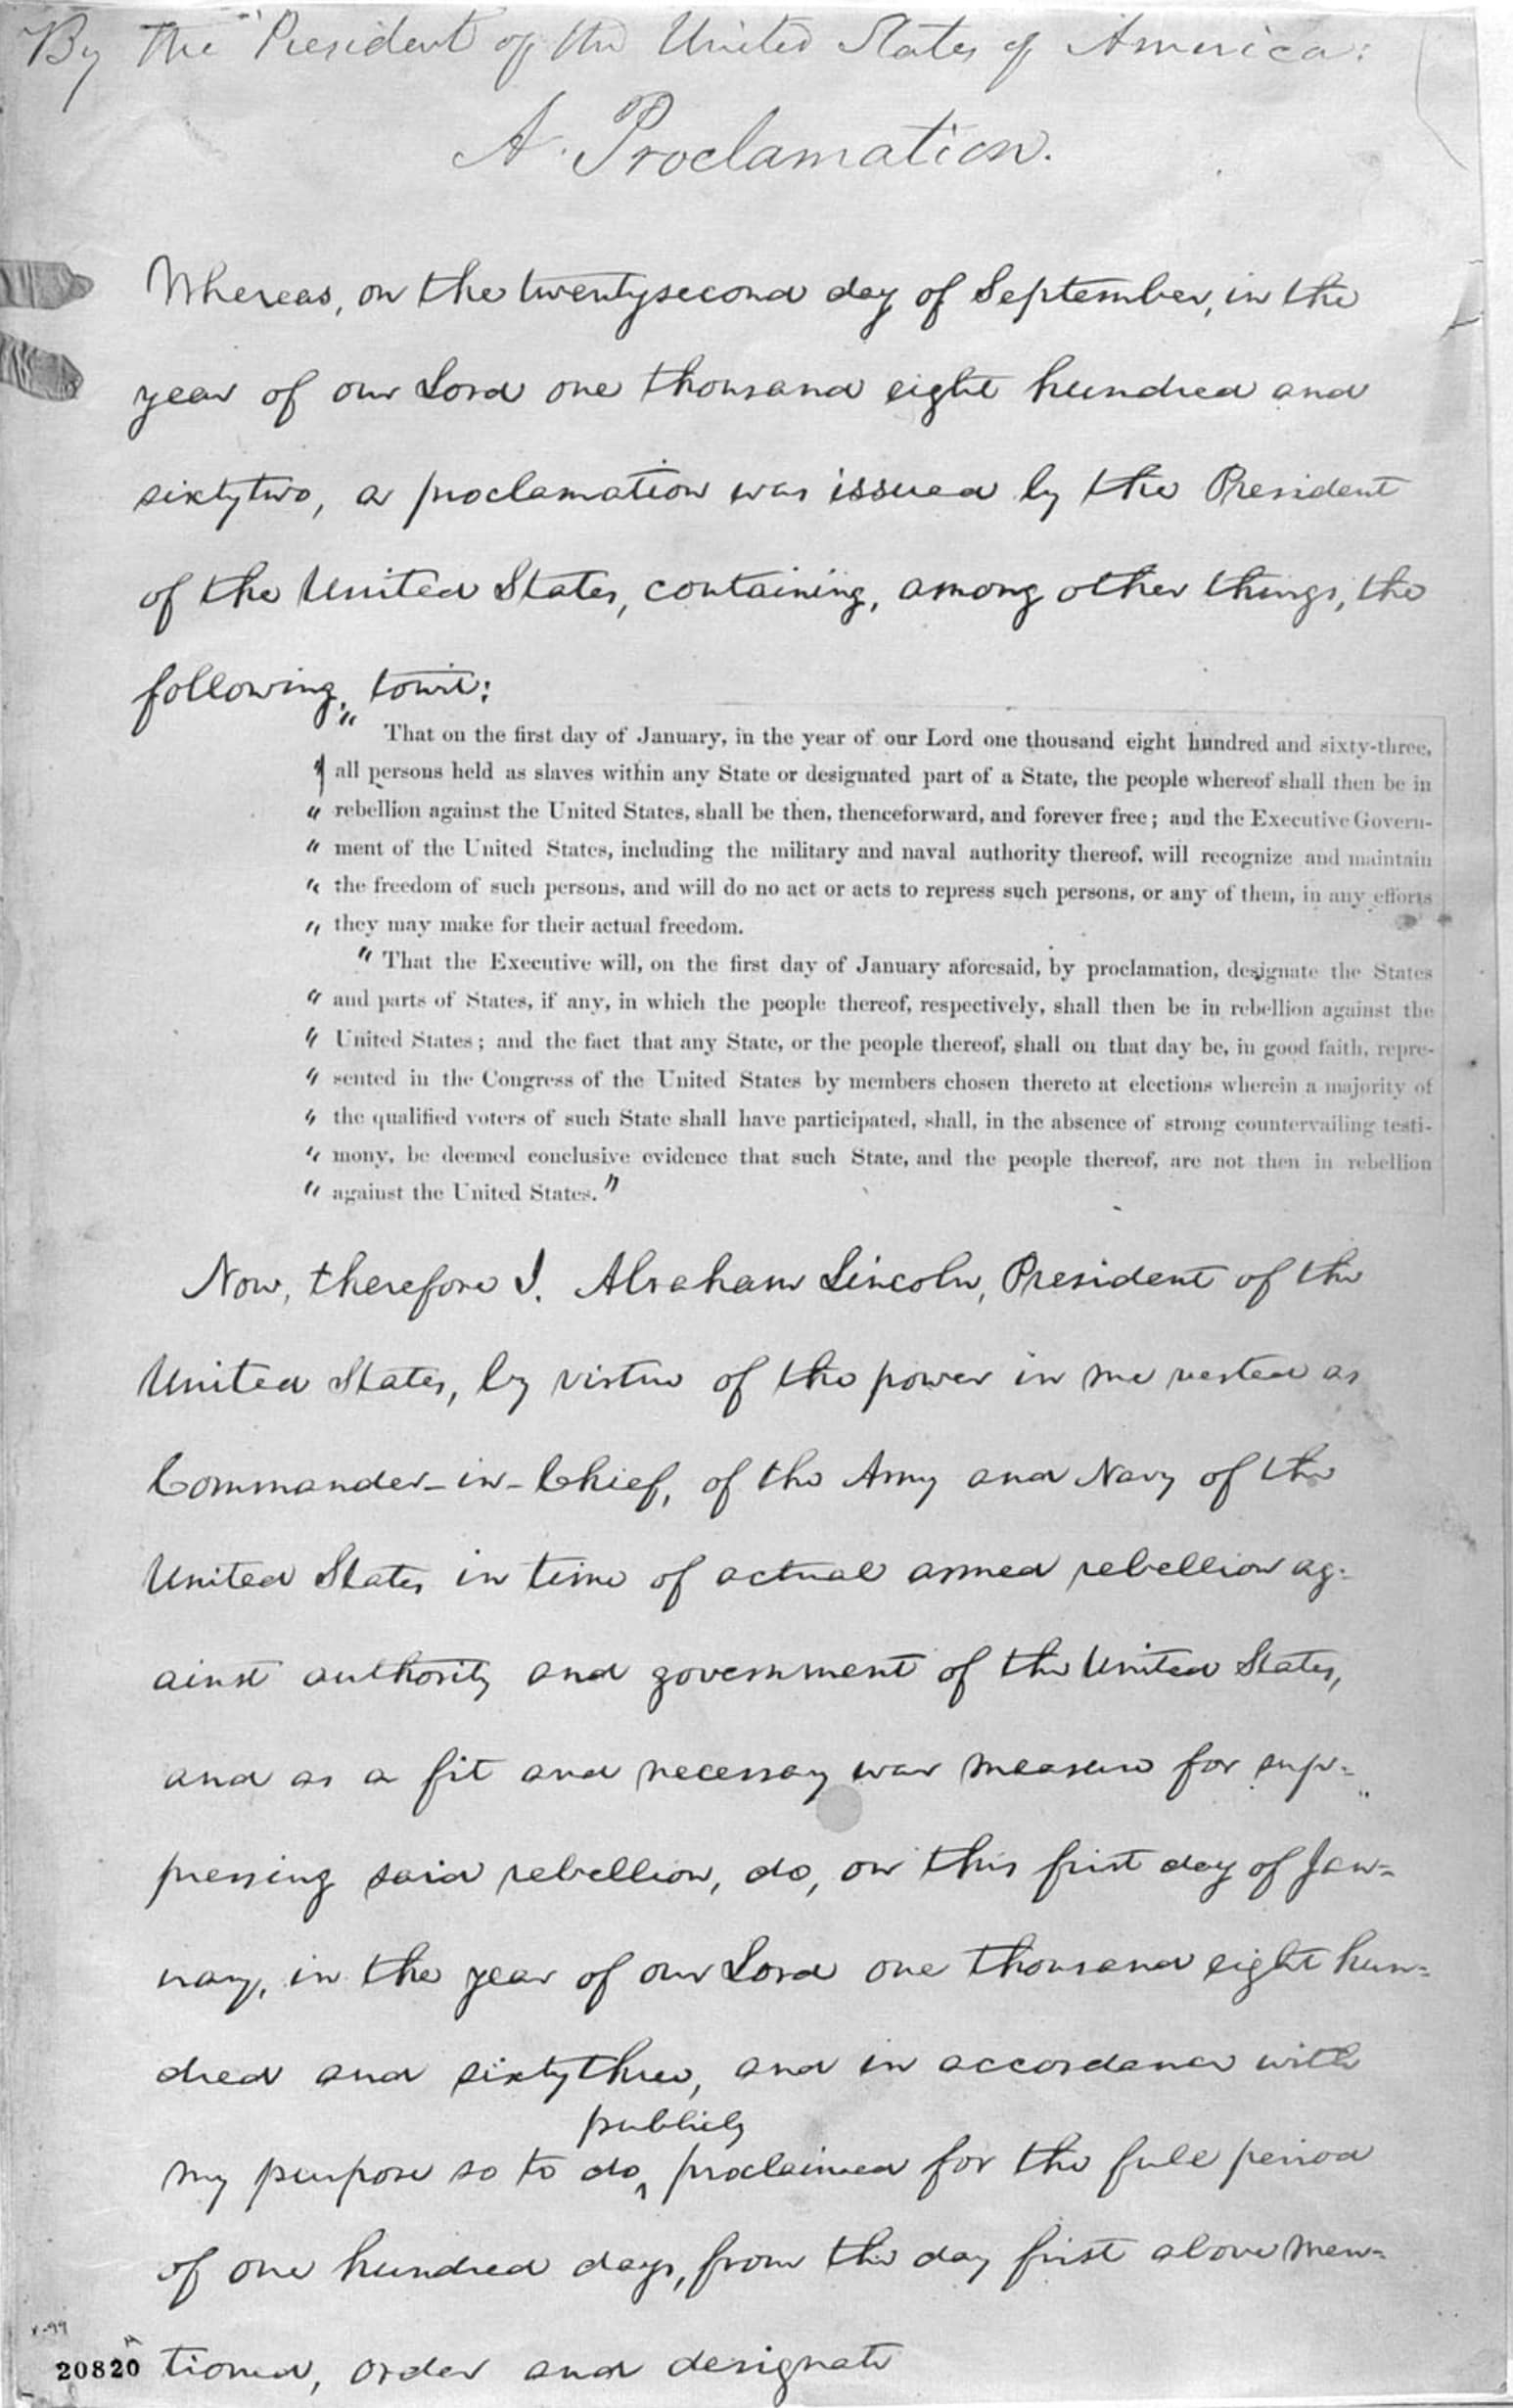 By the President of the United States of America:
A Proclamation.
Whereas, on the twentysecond day of September, in the
year of our Lord one thousand eight hundred and
sixtytwo, a proclamation was issued by the President
of the United States, containing, among other things, the
following, towit:
" That on the first day of January, in the year of our Lord one thousand eight hundred and sixty-three,
" all persons held as slaves within any State or designated part of a State, the people whereof shall then be in
" rebellion against the United States, shall be then, thenceforward, and forever free; and the Executive Govern-
" ment of the United States, including the military and naval authority thereof, will recognize and maintain
" the freedom of such persons, and will do no act or acts to repress such persons, or any of them, in any efforts
" they may make for their actual freedom.
" That the Executive will, on the first day of January aforesaid, by proclamation, designate the States
" and parts of States, if any, in which the people thereof, respectively, shall then be in rebellion against the
" United States; and the fact that any State, or the people thereof, shall on that day be, in good faith, repre-
" sented in the Congress of the United States by members chosen thereto at elections wherein a majority of
" the qualified voters of such State shall have participated, shall, in the absence of strong countervailing testi-
" mony, be deemed conclusive evidence that such State, and the people thereof, are not then in rebellion
" against the United States."
Now, therefore I, Abraham Lincoln, President of the
United States, by virtue of the power in me vested as
Commander-in-Chief, of the Army and Navy of the
United States in time of actual armed rebellion ag=
ainst authority and government of the United States,
and as a fit and necessary war measure for sup=
pressing said rebellion, do, on this first day of Jan=
uary, in the year of our Lord one thousand eight hun=
dred and sixtythree, and in accordance with
publicly
my purpose so to do, proclaimed for the full period
of one hundred days, from the day first above men=
tioned, order and designate
20820